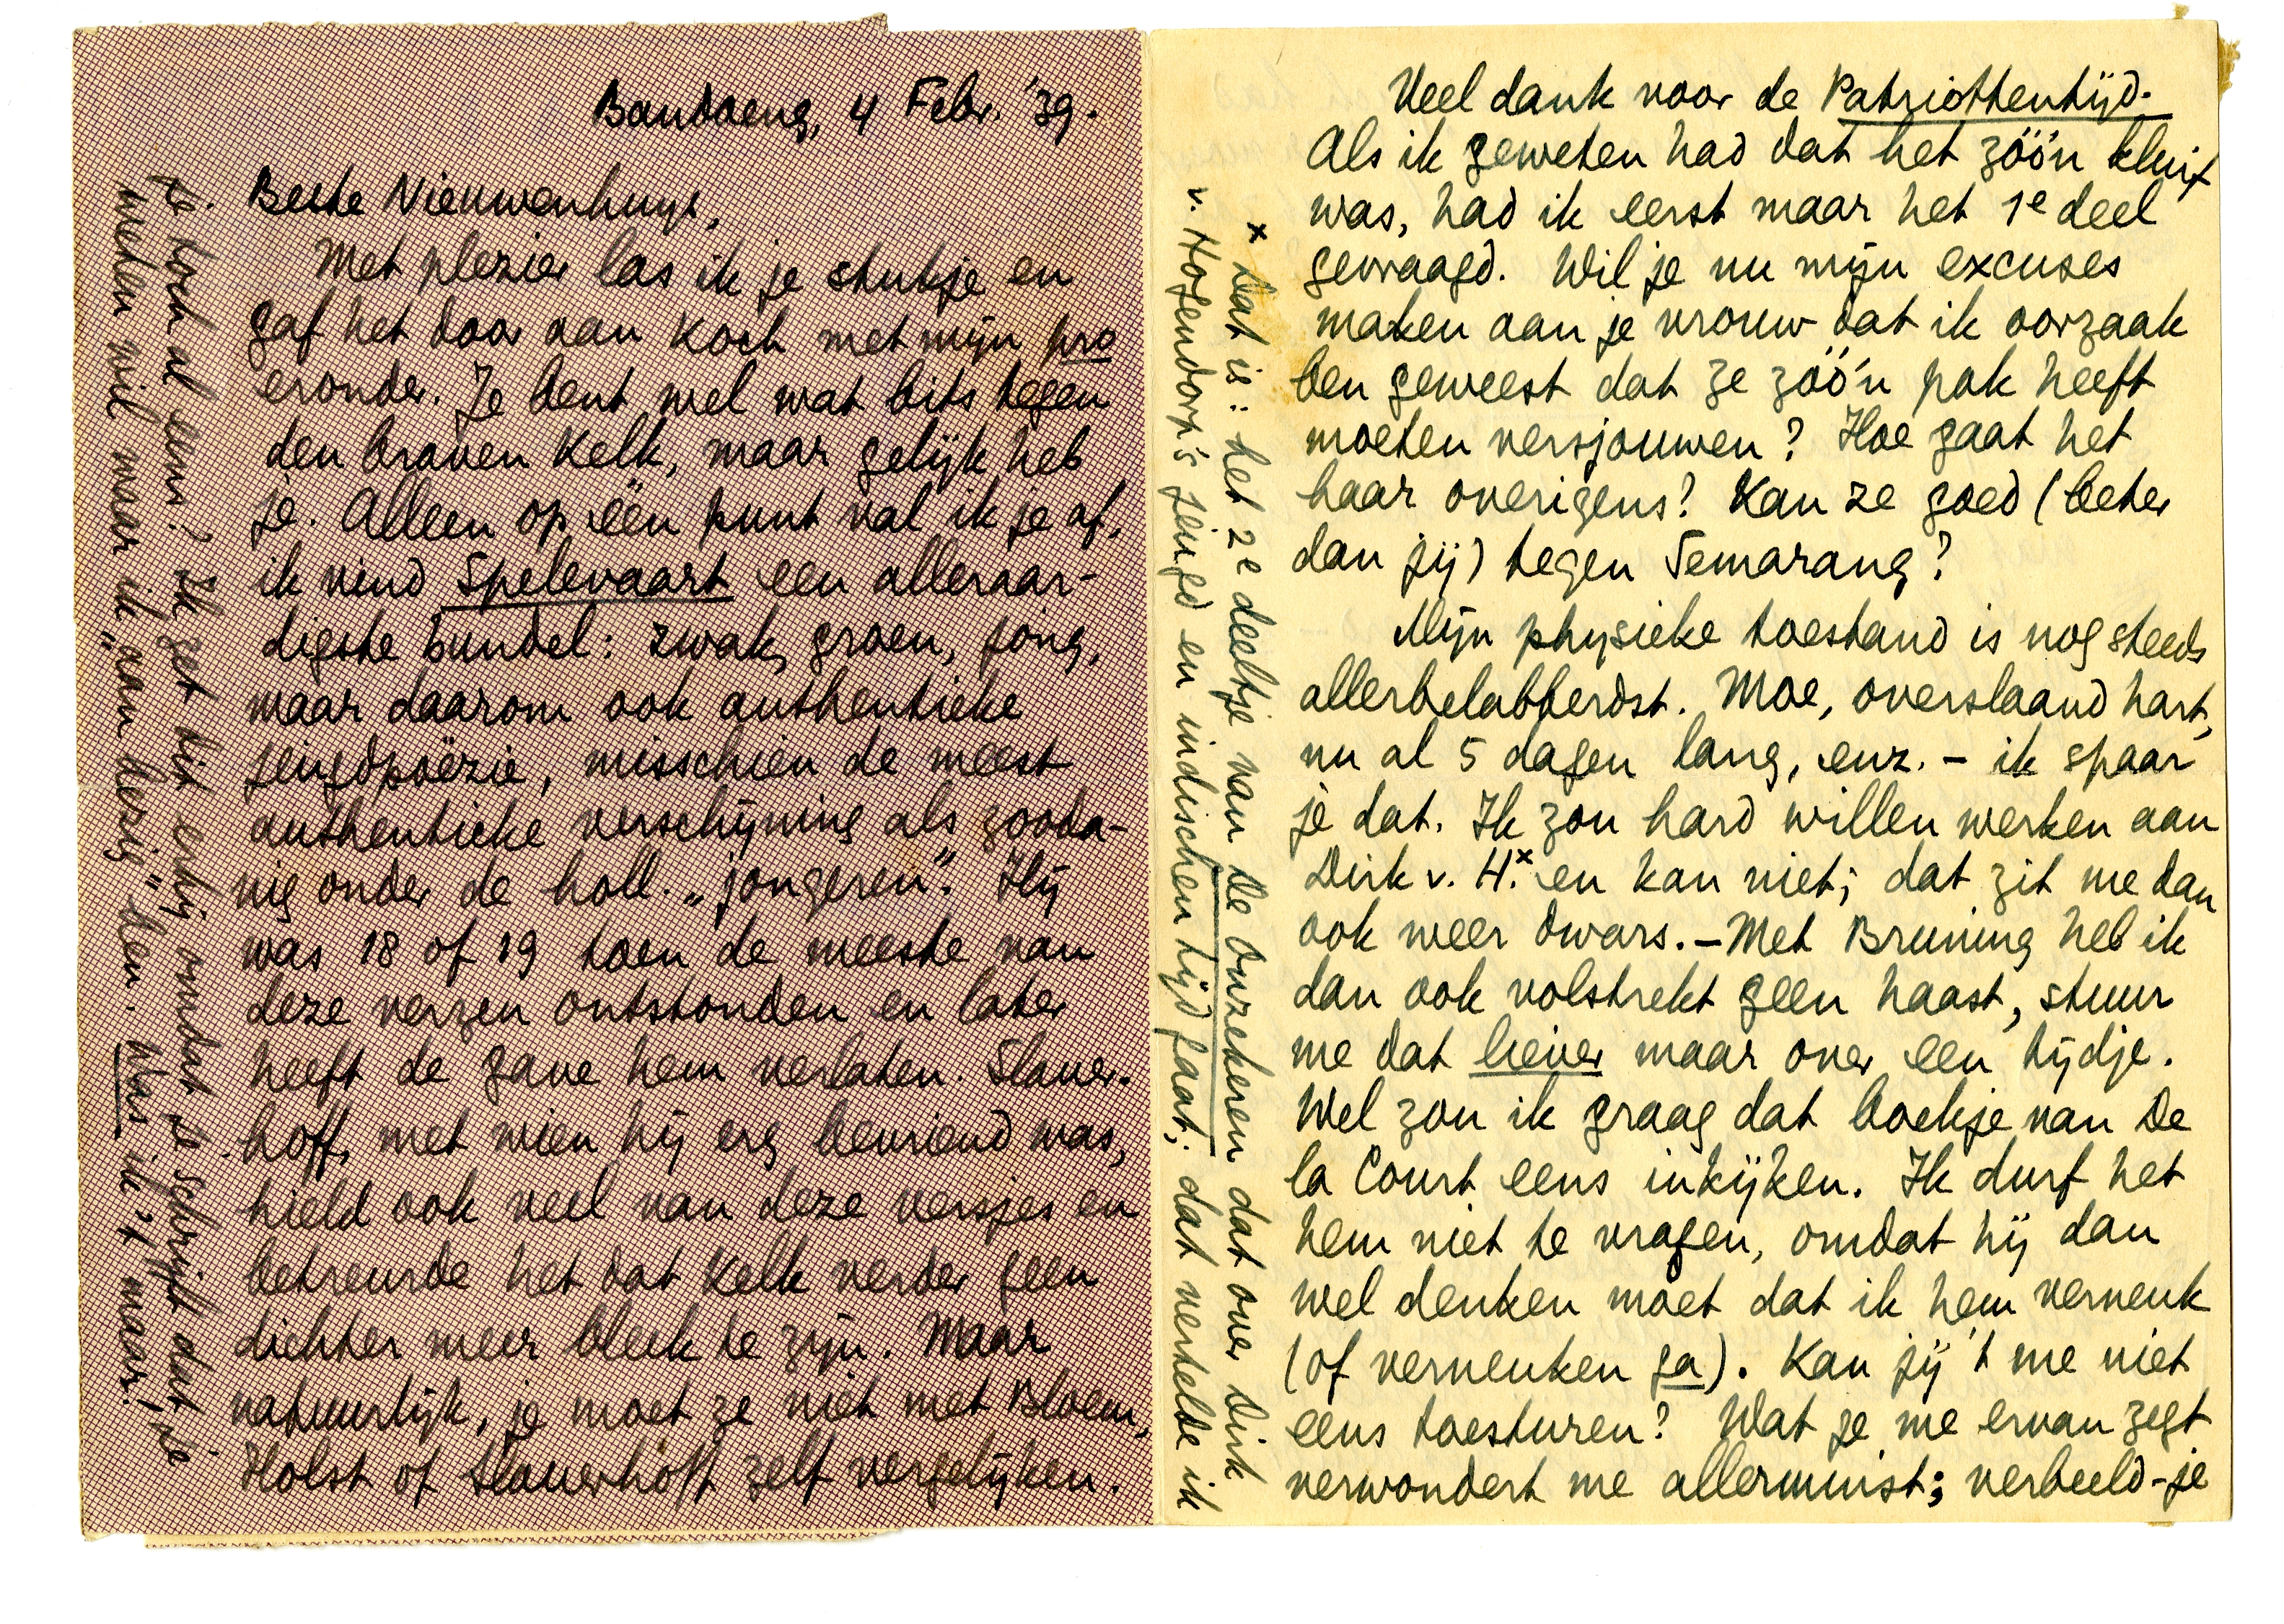 Bandoeng, 4 Febr. '39.
Beste Nieuwenhuys,
Met plezier las ik je stukje en
gaf het door aan Koch met mijn pro
eronder. Je bent wel wat bits tegen
den braven Kelk, maar gelijk heb
je. Alleen op één punt val ik je af,
ik vind Spelevaart een alleraar-
digste bundel: zwak, groen, jong,
maar daarom ook authentieke
jeugdpoëzie, misschien de meest
authentieke verschijning als zooda-
nig onder de holl. „jongeren". Hij
was 18 of 19 toen de meeste van
deze verzen ontstonden en later
heeft de gave hem verlaten. Slauer-
hoff, met wien hij erg bevriend was,
hield ook veel van deze versjes en
betreurde het dat Kelk verder geen
dichter meer bleek te zijn. Maar
natuurlijk, je moet ze niet met Bloem,
Holst of Slauerhoff zelf vergelijken.
je toch al eens? Ik zet dit erbij omdat je schrijft dat je
weten wil waar ik „aan bezig" ben. Was ik 't maar!
Veel dank voor de Patriottentijd.
Als ik geweten had dat het zóó'n kluif
was, had ik eerst maar het 1e deel
gevraagd. Wil je nu mijn excuses
maken aan je vrouw dat ik oorzaak
ben geweest dat ze zóó'n pak heeft
moeten versjouwen? Hoe gaat het
haar overigens? Kan ze goed (beter
dan jij) tegen Semarang?
Mijn physieke toestand is nog steeds
allerbelabberdst. Moe, overslaand hart,
nu al 5 dagen lang, enz. – ik spaar
je dat. Ik zou hard willen werken aan
Dirk v. H.x en kan niet; dat zit me dan
ook weer dwars. – Met Bruning heb ik
dan ook volstrekt geen haast, stuur
me dat liever maar over een tijdje.
Wel zou ik graag dat boekje van De
la Court eens inkijken. Ik durf het
hem niet te vragen, omdat hij dan
wel denken moet dat ik hem verneuk
(of verneuken ga). Kan jij 't me niet
eens toesturen? Wat je me ervan zegt
verwondert me allerminst; verbeeld-je
x Dat is: het 2e deeltje van De Onzekeren dat over Dirk
v. Hogendorp's jeugd en indischen tijd gaat; dat vertelde ik